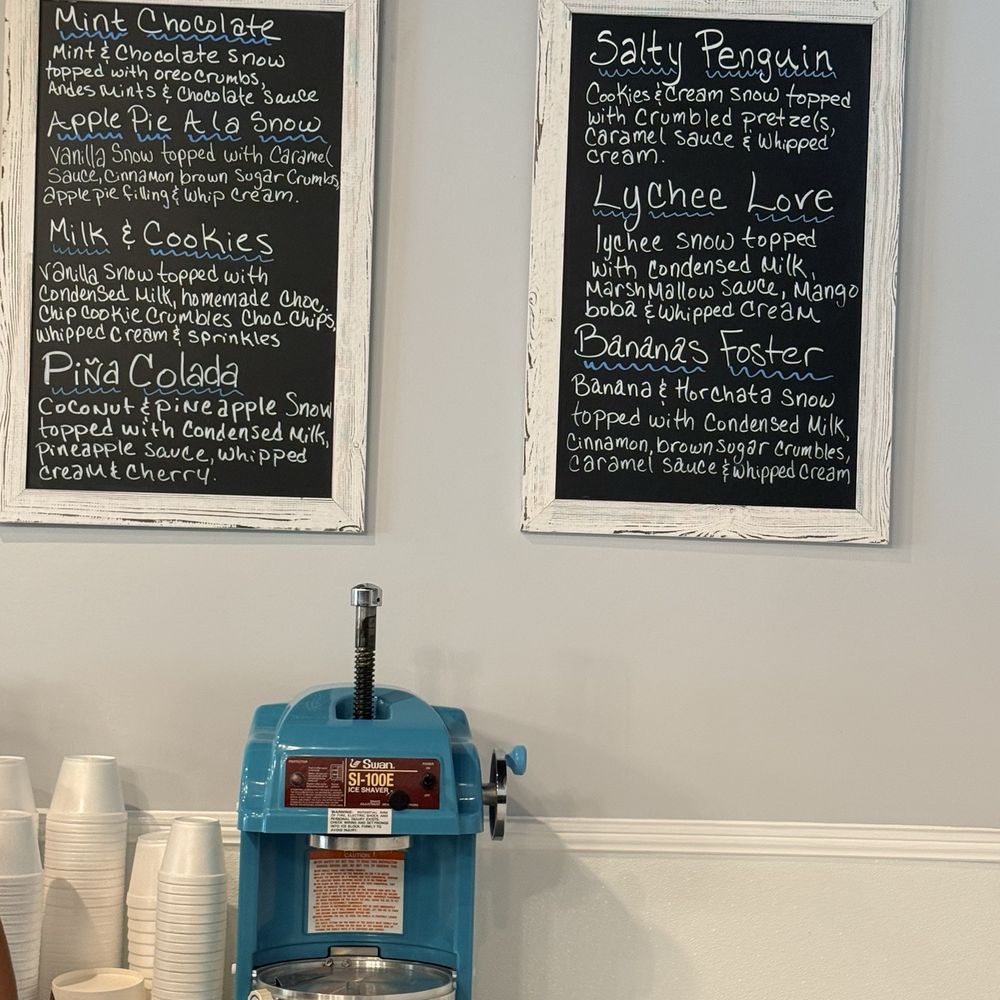 Mint Chocolate
Mint & Chocolate Snow
topped with oreo crumbs,
Andes Mints & Chocolate Sauce
Apple Pie A la Snow
Vanilla Snow topped with Caramel
Sauce, Cinnamon brown Sugar Crumbs,
apple pie filling & whip Cream.
Milk & Cookies
Vanilla Snow topped with
Condensed Milk, homemade Choc.
Chip Cookie Crumbles Choc. Chips,
whipped Cream & Sprinkles
Piña Colada
Coconut & Pineapple Snow
topped with Condensed Milk,
Pineapple Sauce, whipped
Cream & Cherry.
Salty Penguin
Cookies & Cream Snow topped
with Crumbled pretzels,
Caramel Sauce & Whipped
Cream.
Lychee Love
lychee Snow topped
with Condensed Milk,
Marshmallow Sauce, Mango
boba & Whipped Cream
Bananas Foster
Banana & Horchata Snow
topped with Condensed Milk,
Cinnamon, brown Sugar Crumbles,
Caramel Sauce & Whipped Cream
Swan
SI-100E
ICE SHAVER
CAUTION